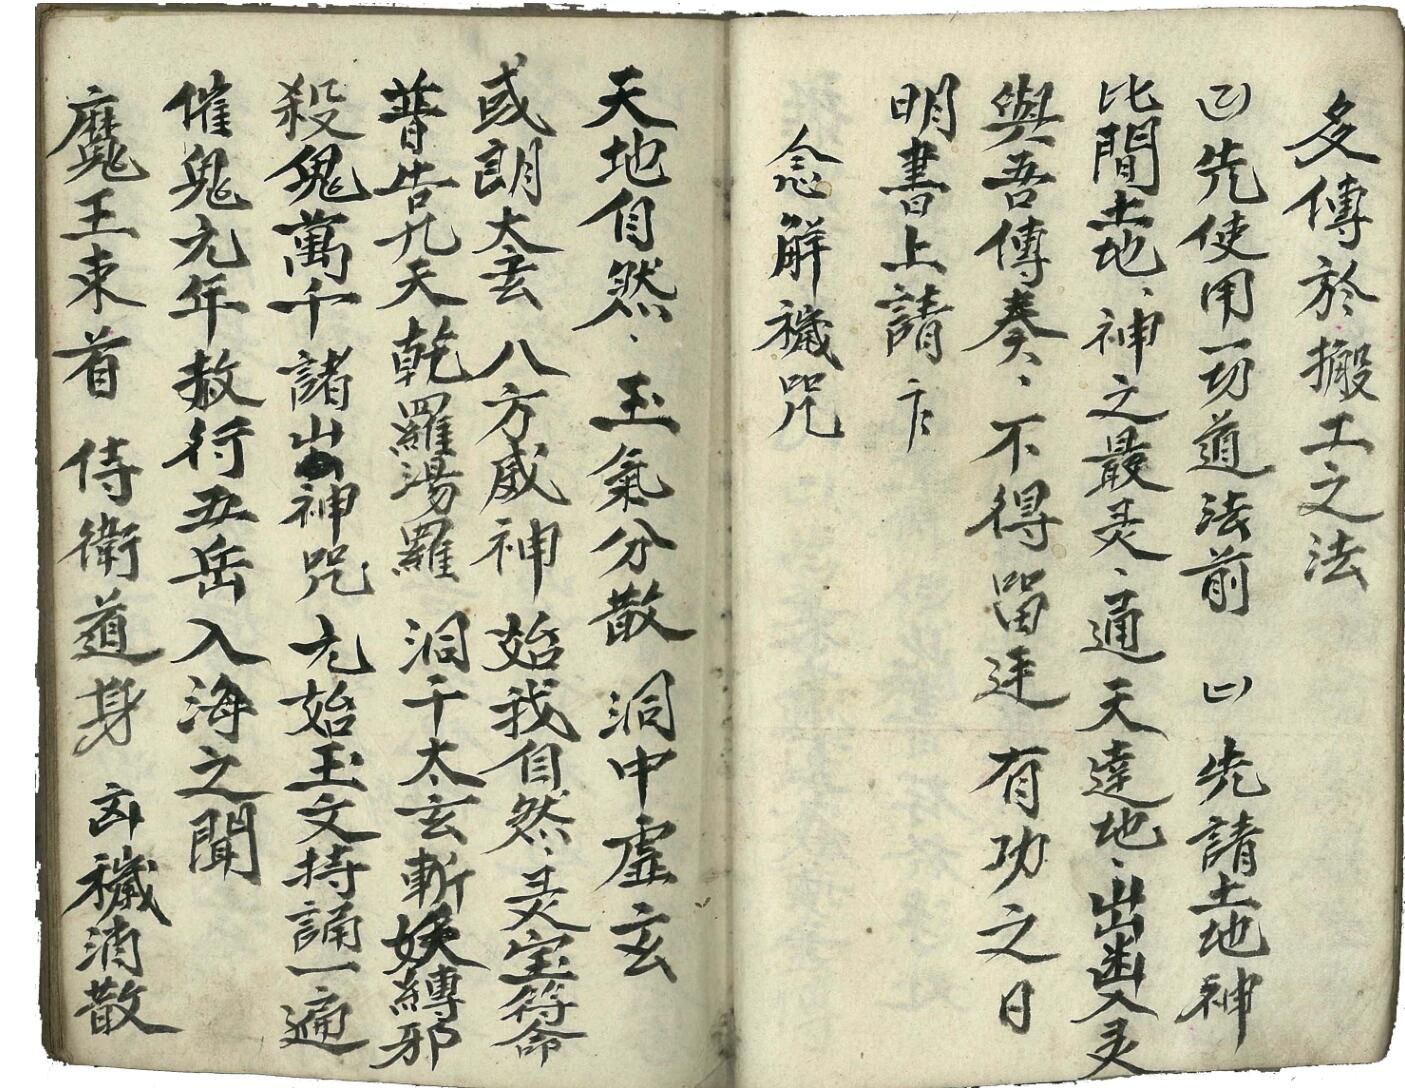 多傳於搬工之法
㠯先使用一切道法前 㠯先請土地神
比間土地、神之最灵、通天達地、出幽入灵
與吾傳奏、不得畄連 有功之日
明書上請
念解穢咒
天地自然、玉氣分散 洞中虛玄
或朗太玄 八方威神 始我自然、灵宝符命
普告九天 乾羅湯羅 洞干太玄 斬妖縛邪
殺鬼萬千 諸山神咒 元始玉文 持誦一遍
催鬼元年 赦行五岳 入海之聞
魔王束首 侍衛道身 凶穢消散